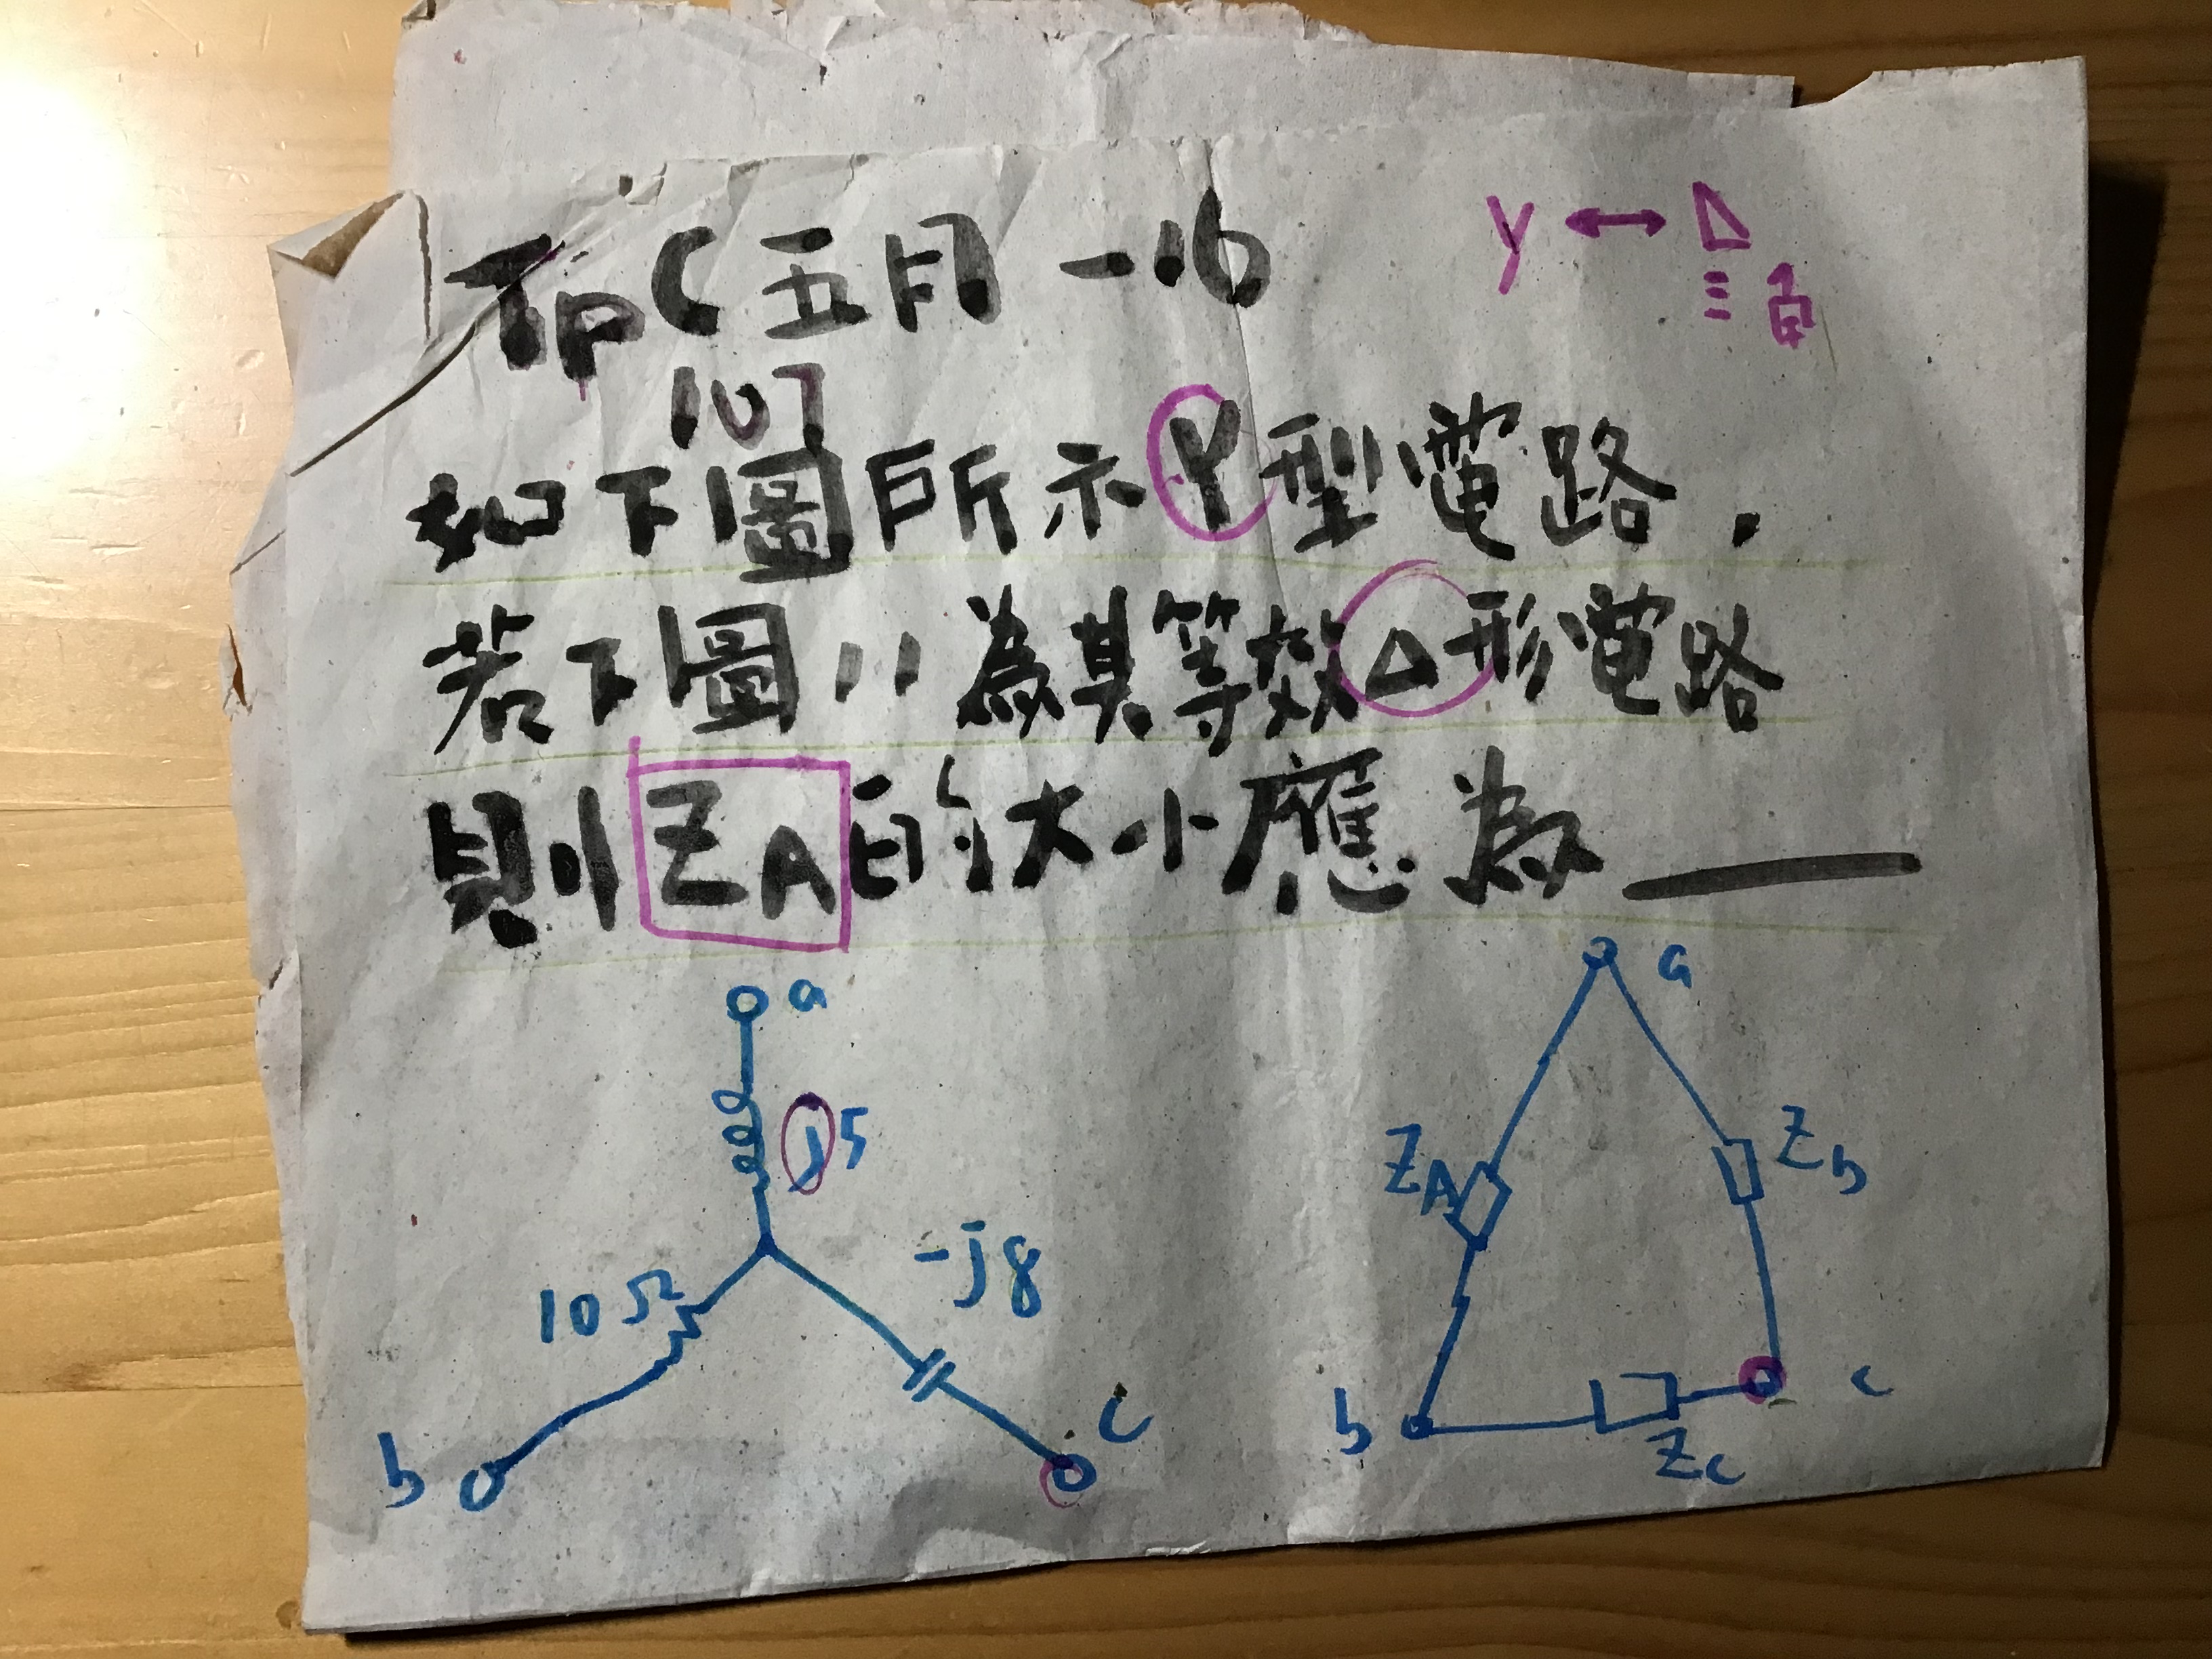 Tpc 五月 -16
107
Y ↔ △
三角
如下圖所示Y型電路.
若下圖11為其等效△形電路
則ZA的大小應為____
a
j5
-j8
10Ω
b
c
a
ZA
Zb
b
c
Zc